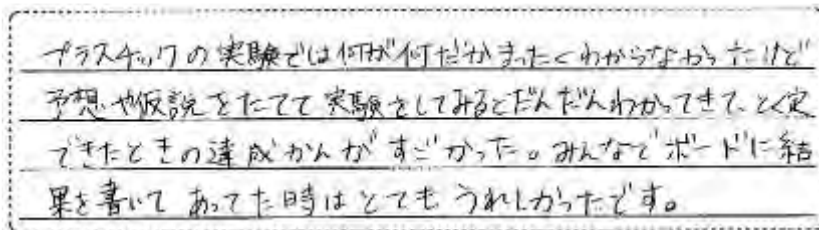 プラスチックの実験では何が何だかまったくわからなかったけど
予想や仮説をたてて実験をしてみるとだんだんわかってきて、とく定
できたときの達成かんがすごかった。みんなでボードに結
果を書いてあってた時はとてもうれしかったです。